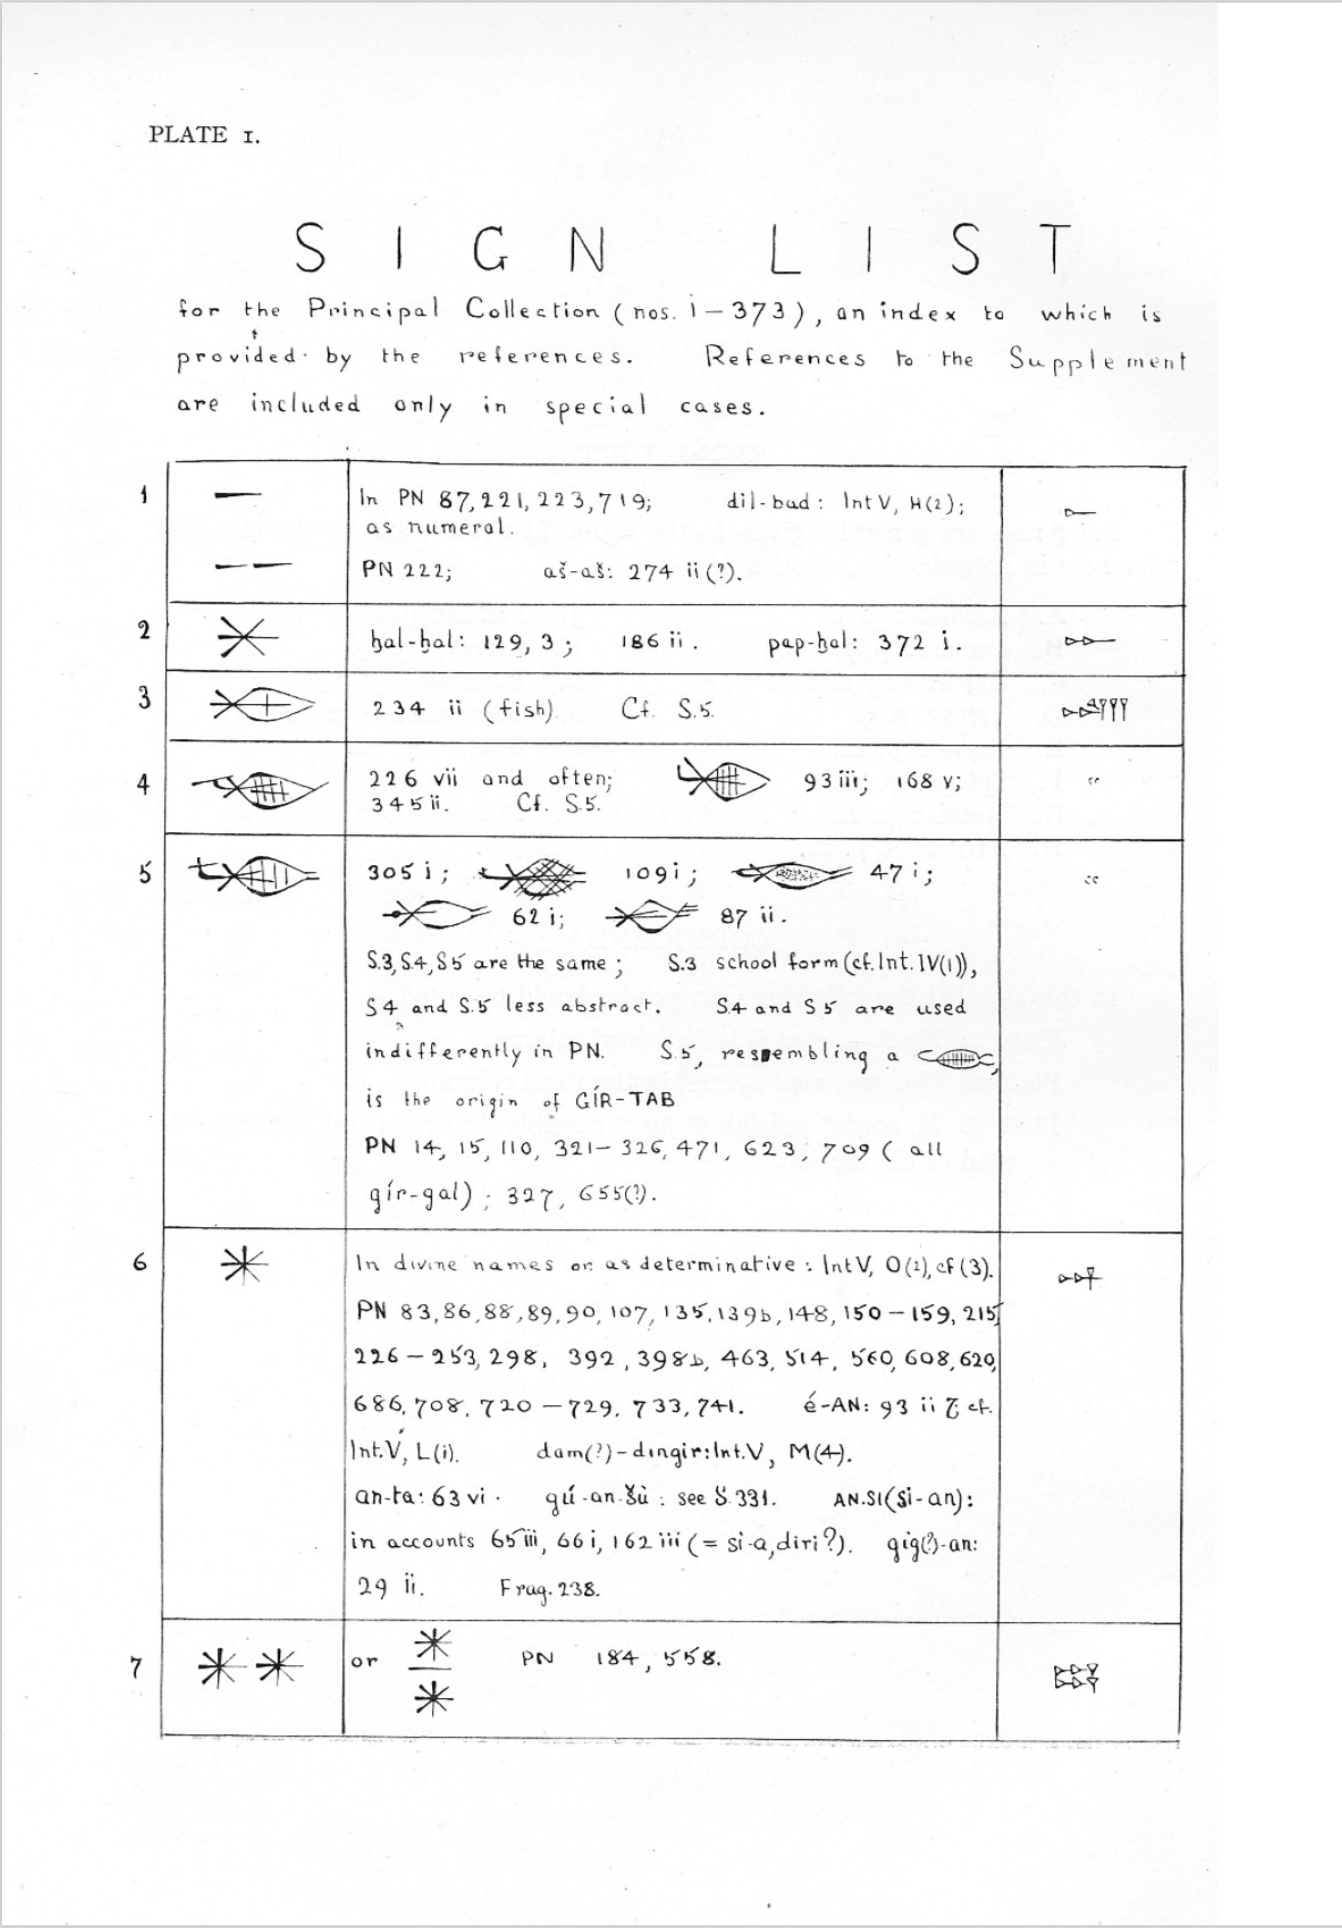 PLATE 1.
SIGN LIST
for the Principal Collection (nos. 1–373), an index to which is
provided by the references. References to the Supplement
are included only in special cases.
1 In PN 87, 221, 223, 719; dil-bad: Int V, H(2);
as numeral.
PN 222; aš-aš: 274 ii (?).
2 ḫal-ḫal: 129, 3; 186 ii. pap-ḫal: 372 i.
3 234 ii (fish). Cf. S.5.
4 226 vii and often; 93 iii; 168 v;
345 ii. Cf. S.5.
5 305 i; 109 i; 47 i;
62 i; 87 ii.
S.3, S.4, S5 are the same; S.3 school form (cf. Int. IV(1)),
S4 and S.5 less abstract. S.4 and S5 are used
indifferently in PN. S.5, resembling a
is the origin of GÍR-TAB
PN 14, 15, 110, 321–326, 471, 623, 709 ( all
gír-gal) ; 327, 655(?).
6 In divine names or as determinative: Int V, O(1), cf (3).
PN 83, 86, 88, 89, 90, 107, 135, 139b, 148, 150–159, 215,
226–253, 298, 392, 398b, 463, 514, 560, 608, 620,
686, 708, 720–729, 733, 741. é-AN: 93 ii 7; cf.
Int. V, L(i). dam(?)-dingir: Int. V, M(4).
an-ta: 63 vi. gú-an-šù: see S.331. AN.SI (si-an):
in accounts 65 iii, 66 i, 162 iii (= si-a, diri?). gig(?)-an:
29 ii. Frag. 238.
7 or PN 184, 558.